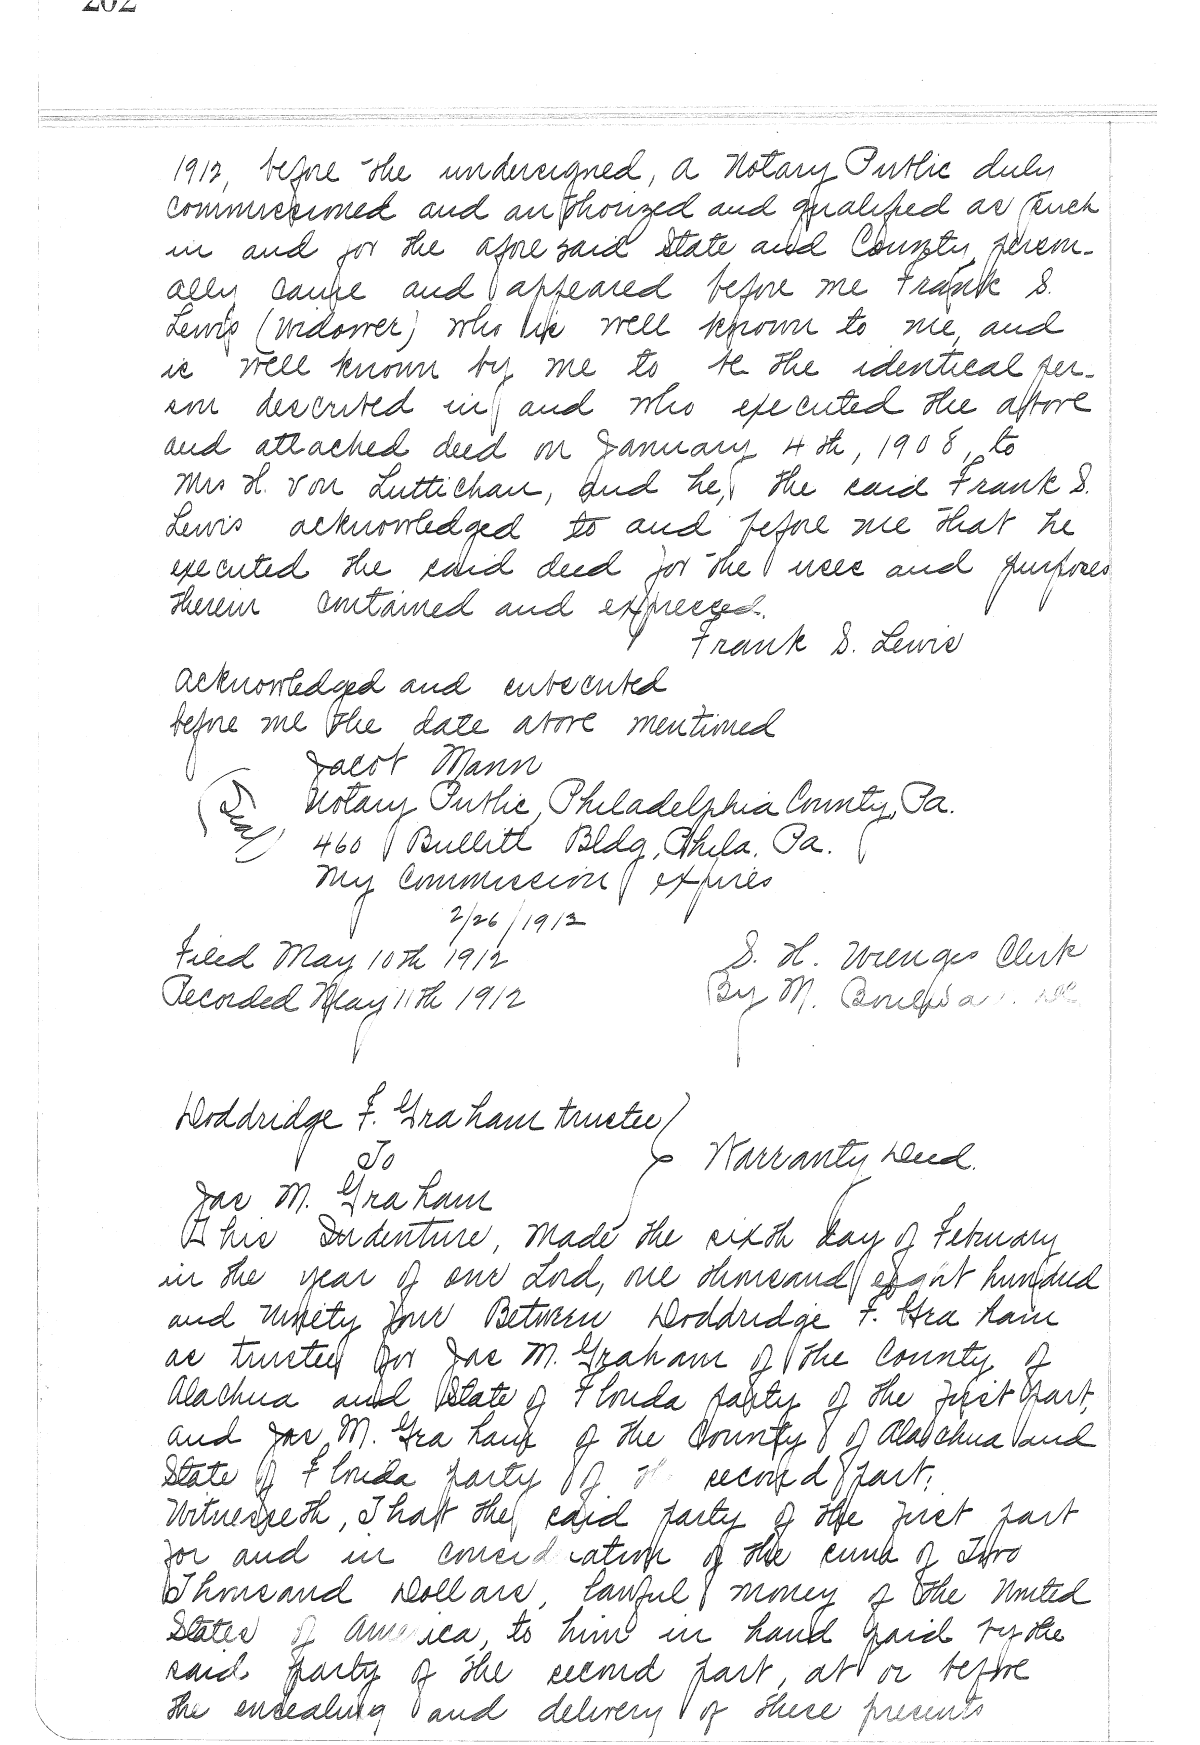 202
1912, before the undersigned, a Notary Public duly
commissioned and authorized and qualified as such
in and for the afore said State and County, person-
ally came and appeared before me Frank S.
Lewis (widower) who is well known to me, and
is well known by me to be the identical per-
son described in and who executed the above
and attached deed on January 4th, 1908, to
Mrs H. von Luttichau, and he, the said Frank S.
Lewis acknowledged to and before me that he
executed the said deed for the uses and purposes
therein contained and expressed.
Frank S. Lewis
Acknowledged and subscribed
before me the date above mentioned
Jacob Mann
(Seal) Notary Public, Philadelphia County, Pa.
460 Bullitt Bldg, Phila. Pa.
My commission expires
2/26/1913
Filed May 10th 1912 S. H. Wienges Clerk
Recorded May 11th 1912 By M. DC
Doddridge F. Graham trustee
To Warranty Deed.
Jas M. Graham
This Indenture, Made the sixth day of February
in the year of our Lord, one thousand eight hundred
and Ninety four Between Doddridge F. Graham
as trustee for Jas M. Graham of the County of
Alachua and State of Florida party of the first part,
and Jas M. Graham of the County of Alachua and
State of Florida party of th second part;
Witnesseth, That the said party of the first part
for and in consideration of the sum of Two
Thousand Dollars, lawful money of the United
States of America, to him in hand paid by the
said party of the second part, at or before
the ensealing and delivery of these presents